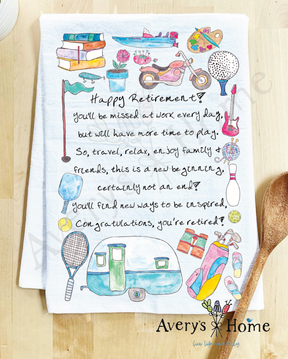 Happy Retirement!
You'll be missed at work every day,
but will have more time to play.
So, travel, relax, enjoy family &
friends, this is a new beginning,
certainly not an end!
You'll find new ways to be inspired,
Congratulations, you're retired!
Avery's Home